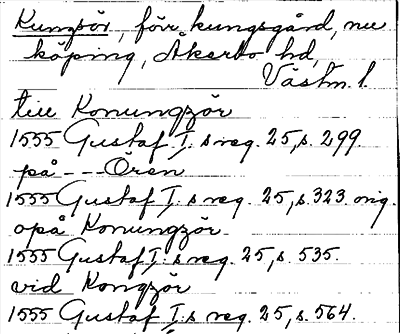 Kungsör, förr kungsgård, nu
köping, Åkerbo hd,
Västm. l.
till Konungzör
1555 Gustaf I:s reg. 25, s. 299.
på --- Ören
1555 Gustaf I:s reg. 25, s. 323. orig.
opå Konungzör
1555 Gustaf I:s reg. 25, s. 535.
vid Kongzör
1555 Gustaf I:s reg. 25, s. 564.